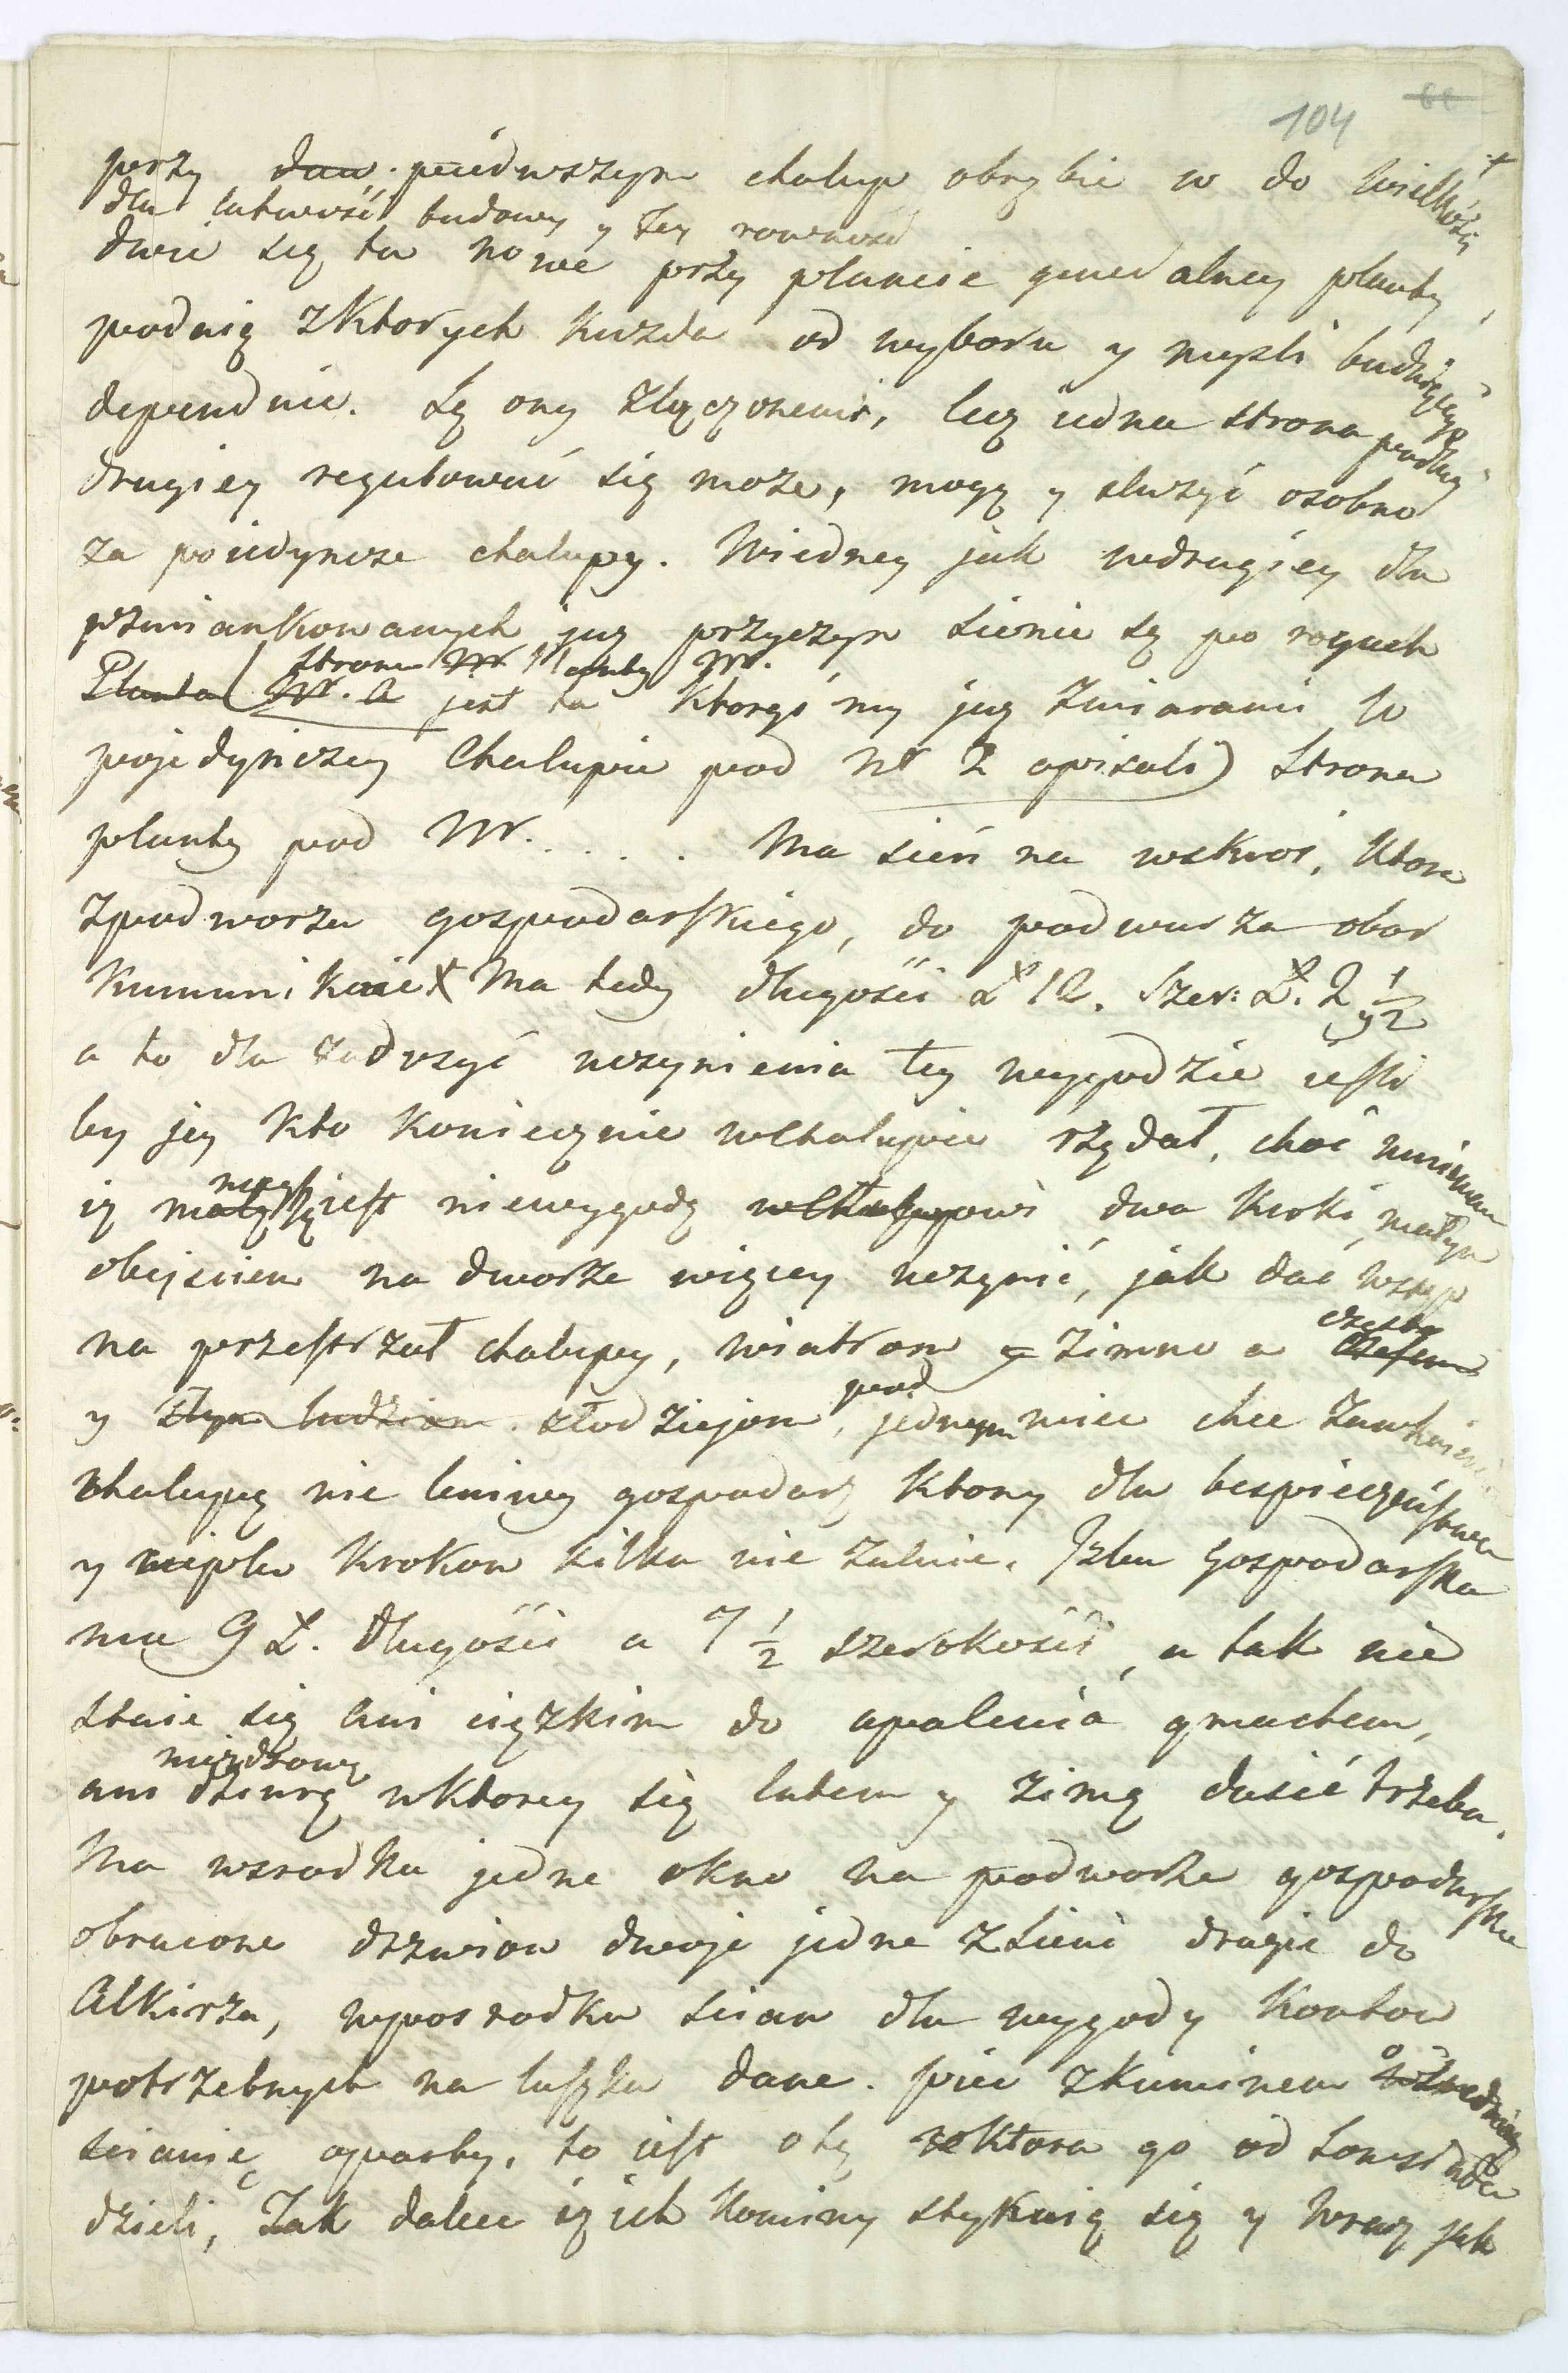 104
przy daw. pierwszym chałup obrębie w do wielkości
dla łatwość budowy y tey rowność
dwie są tu nowe przy plancie generalney planty
podnię z Ktorych Kużda od wyboru y mysli buduiącego
depeenduie. Są ony złączonemi, lecz iedna strona podług
drugiey regulować się może, mogą y służyć osobno
za poiedyncze chałupy. Wiedney jak wdrugiey dla
wzmiankowanych juz przyczyn sienie są po rogach
strona Nr planty Nr.
Planta Nr. a jest ta Ktorąśmy juz zmiarami w
pojedynczey Chałupie pod Nr 2 opisali) Strona
planty pod Nr. . . . . Ma sień na wskroś, Ktora
zpodworza gospodarskiego, do podwurza obor
Kummunikuie Ma tedy długości Ł 12. Szer: Ł. 2 1/2
a to dla zadosyć uczynienia tey wygodzie iesli
by jey Kto Koniecznie wChałupie rządał, choć mniemam
iż małą jest niewygodą wChałupowi dwa Kroki małym
obejsciem na dworze więcey uczynić, jak dać wstęp
na przestrzał chałupy, wiatrom y zimno a często
czasem
y złym ludziom złodziejom, pod jednym miec chce zamknięciem
chałupę nie leniwy gospodarz Ktory dla bespieczeństwa
y ciepła Krokow kilka nie żałuie. Jzba Gospodarska
ma 9 Ł. długości a 7 1/2 szerokości, a tak nie
staie się ani ciężkim do opalenia gmachem,
ani dziurą wKtorey się latem y zimą dusić trzeba.
Ma wsrodku jedne okno na podworze gospodarskie
obrucone drzwiow dwoje jedne zSieni drugie do
Alkirza, wposrodku scian dla wygody Kontow
potrzebnych na łuszka dane. piec zKuminem o srednią
scianię oparty, to iest o tę Ktora go od
dzieli, Tak dalece iż ich Kominy stykaią się y wraz jak